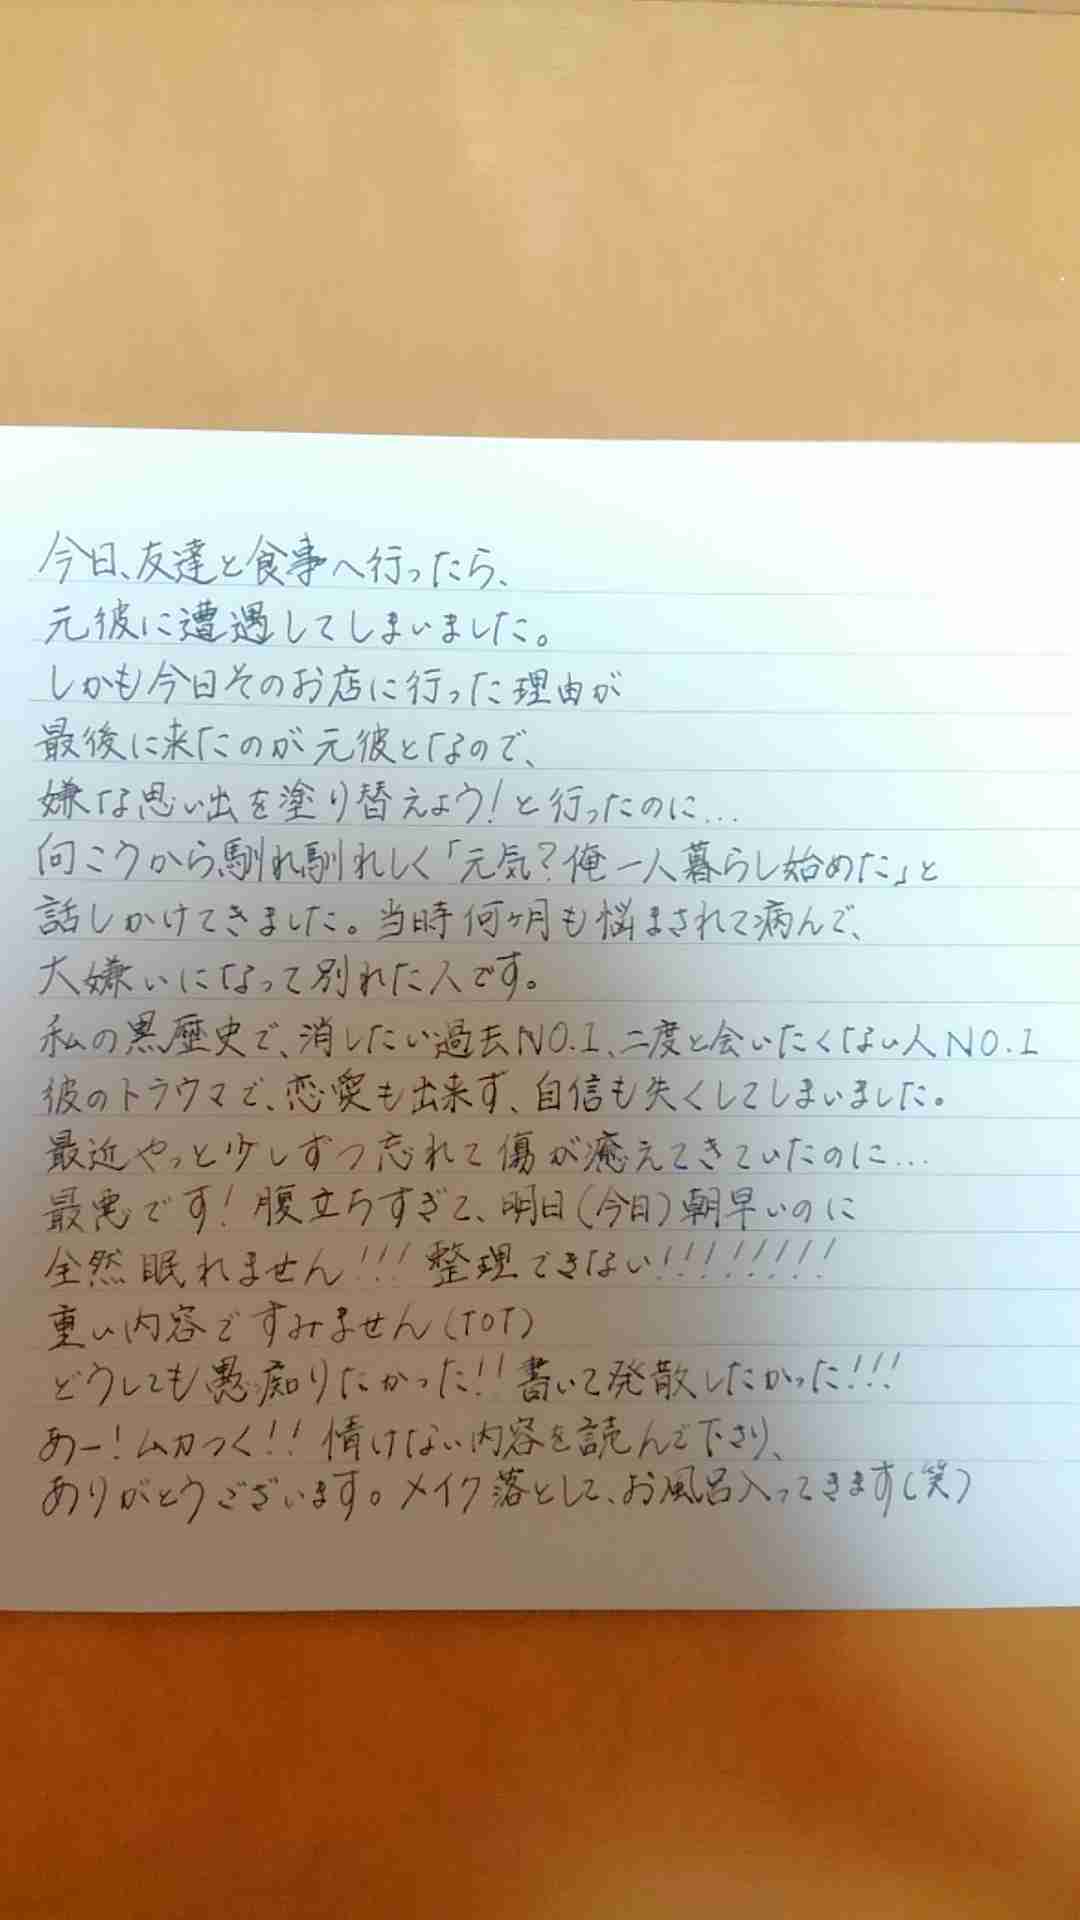 今日、友達と食事へ行ったら、
元彼に遭遇してしまいました。
しかも今日そのお店に行った理由が
最後に来たのが元彼となので、
嫌な思い出を塗り替えよう!と行ったのに...
向こうから馴れ馴れしく「元気?俺一人暮らし始めた」と
話しかけてきました。当時何ヶ月も悩まされて病んで、
大嫌いになって別れた人です。
私の黒歴史で、消したい過去NO.1、二度と会いたくない人NO.1
彼のトラウマで、恋愛も出来ず、自信も失くしてしまいました。
最近やっと少しずつ忘れて傷が癒えてきていたのに...
最悪です!腹立ちすぎて、明日(今日)朝早いのに
全然眠れません!!!整理できない!!!!!!!!
重い内容ですみません(TOT)
どうしても愚痴りたかった!!書いて発散したかった!!!
あー!ムカつく!!情けない内容を読んで下さり、
ありがとうございます。メイク落として、お風呂入ってきます(笑)